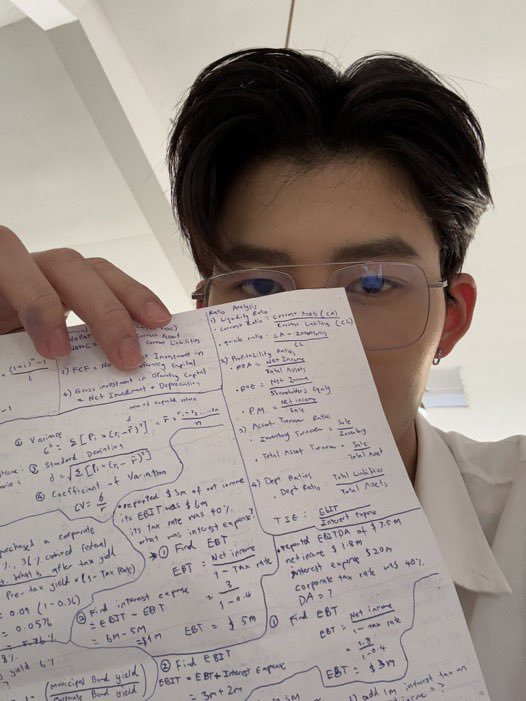 Ratio Analysis
1) Liquidity Ratio
· Current Ratio : Current Assets (CA)
Current Liability (CL)
· quick ratio : CA - Inventory
CL
2) Profitability Ratio
· ROA = Net Income
Total Assets
· ROE = Net Income
Shareholders Equity
· P.M. = Net income
Sale
3) Asset Turnover Ratio
· Inventory Turnover = Sale
Inventory
· Total Asset Turnover = Sale
Total Asset
4) Dept Ratios
· Dept Ratio : Total Liabilities
Total Assets
TIE : EBIT
Interest expense
Current Liabilities
Investment in
Operating Capital
3) FCF =
4) Gross investment in Operating Capital
= Net Investment + Depreciation
④ Variance
б² = Σ [Pi × (ri - r̄)²]
⑤ Standard Deviation
б = √Σ [Pi × (ri - r̄)²]
⑥ Coefficient of Variation
CV = б
r̄
purchased a corporate
federal
What is after tax yield
Pre-tax yield × (1 - Tax Rate)
= 0.09 (1-0.36)
= 0.0576
= 5.76 %
yield 6%
municipal Bond yield
Corporate Bond yield
• reported $3m of net income
its EBIT was $6m
its tax rate was 40%
what was interest expense?
① Find EBT
EBT = Net income
1 - Tax rate
= 3
1 - 0.4
EBT = $ 5m
② Find interest expense
= EBIT - EBT
= 6m - 5m
= $1m
• reported EBITDA of $7.5m
net income $1.8m
interest expense $2.0m
corporate tax rate was 40%
DA = ?
① Find EBT
EBT = Net income
1 - tax rate
= 1.8
1 - 0.4
EBT = $3m
② Find EBIT
EBIT = EBT + Interest Expense
= 3m + 2m
1) add 1m interest tax on